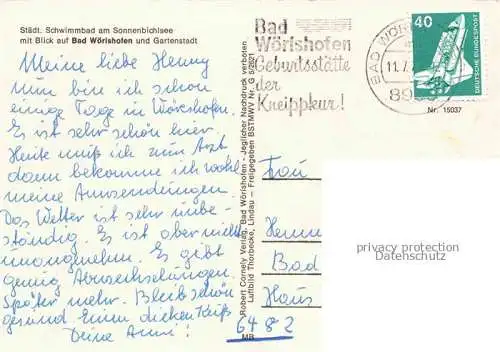 Städt. Schwimmbad am Sonnenbichlsee
mit Blick auf Bad Wörishofen und Gartenstadt
Meine liebe Henny
Nun bin ich schon
einige Tage in Wörishofen.
Es ist sehr schön hier.
Heute muß ich zum Arzt
dann bekomme ich wohl
meine Anwendungen.
Das Wetter ist sehr unbe-
ständig. Es ist aber nicht
unangenehm. Es gibt
genug Abwechselungen.
Später mehr. Bleib schön
gesund Einen dicken Kuß
Deine Anni!
Robert Cornely Verlag, Bad Wörishofen - Jeglicher Nachdruck verboten
Luftbild Thorbecke, Lindau - Freigegeben BSTMWV Nr. G
MB
Bad
Wörishofen
Geburtsstätte
der
Kneippkur!
BAD WÖRIS
11.7.
89
40
DEUTSCHE BUNDESPOST
Nr. 15037
Frau
Henn
Bad
Haus
6482
privacy protection
Datenschutz